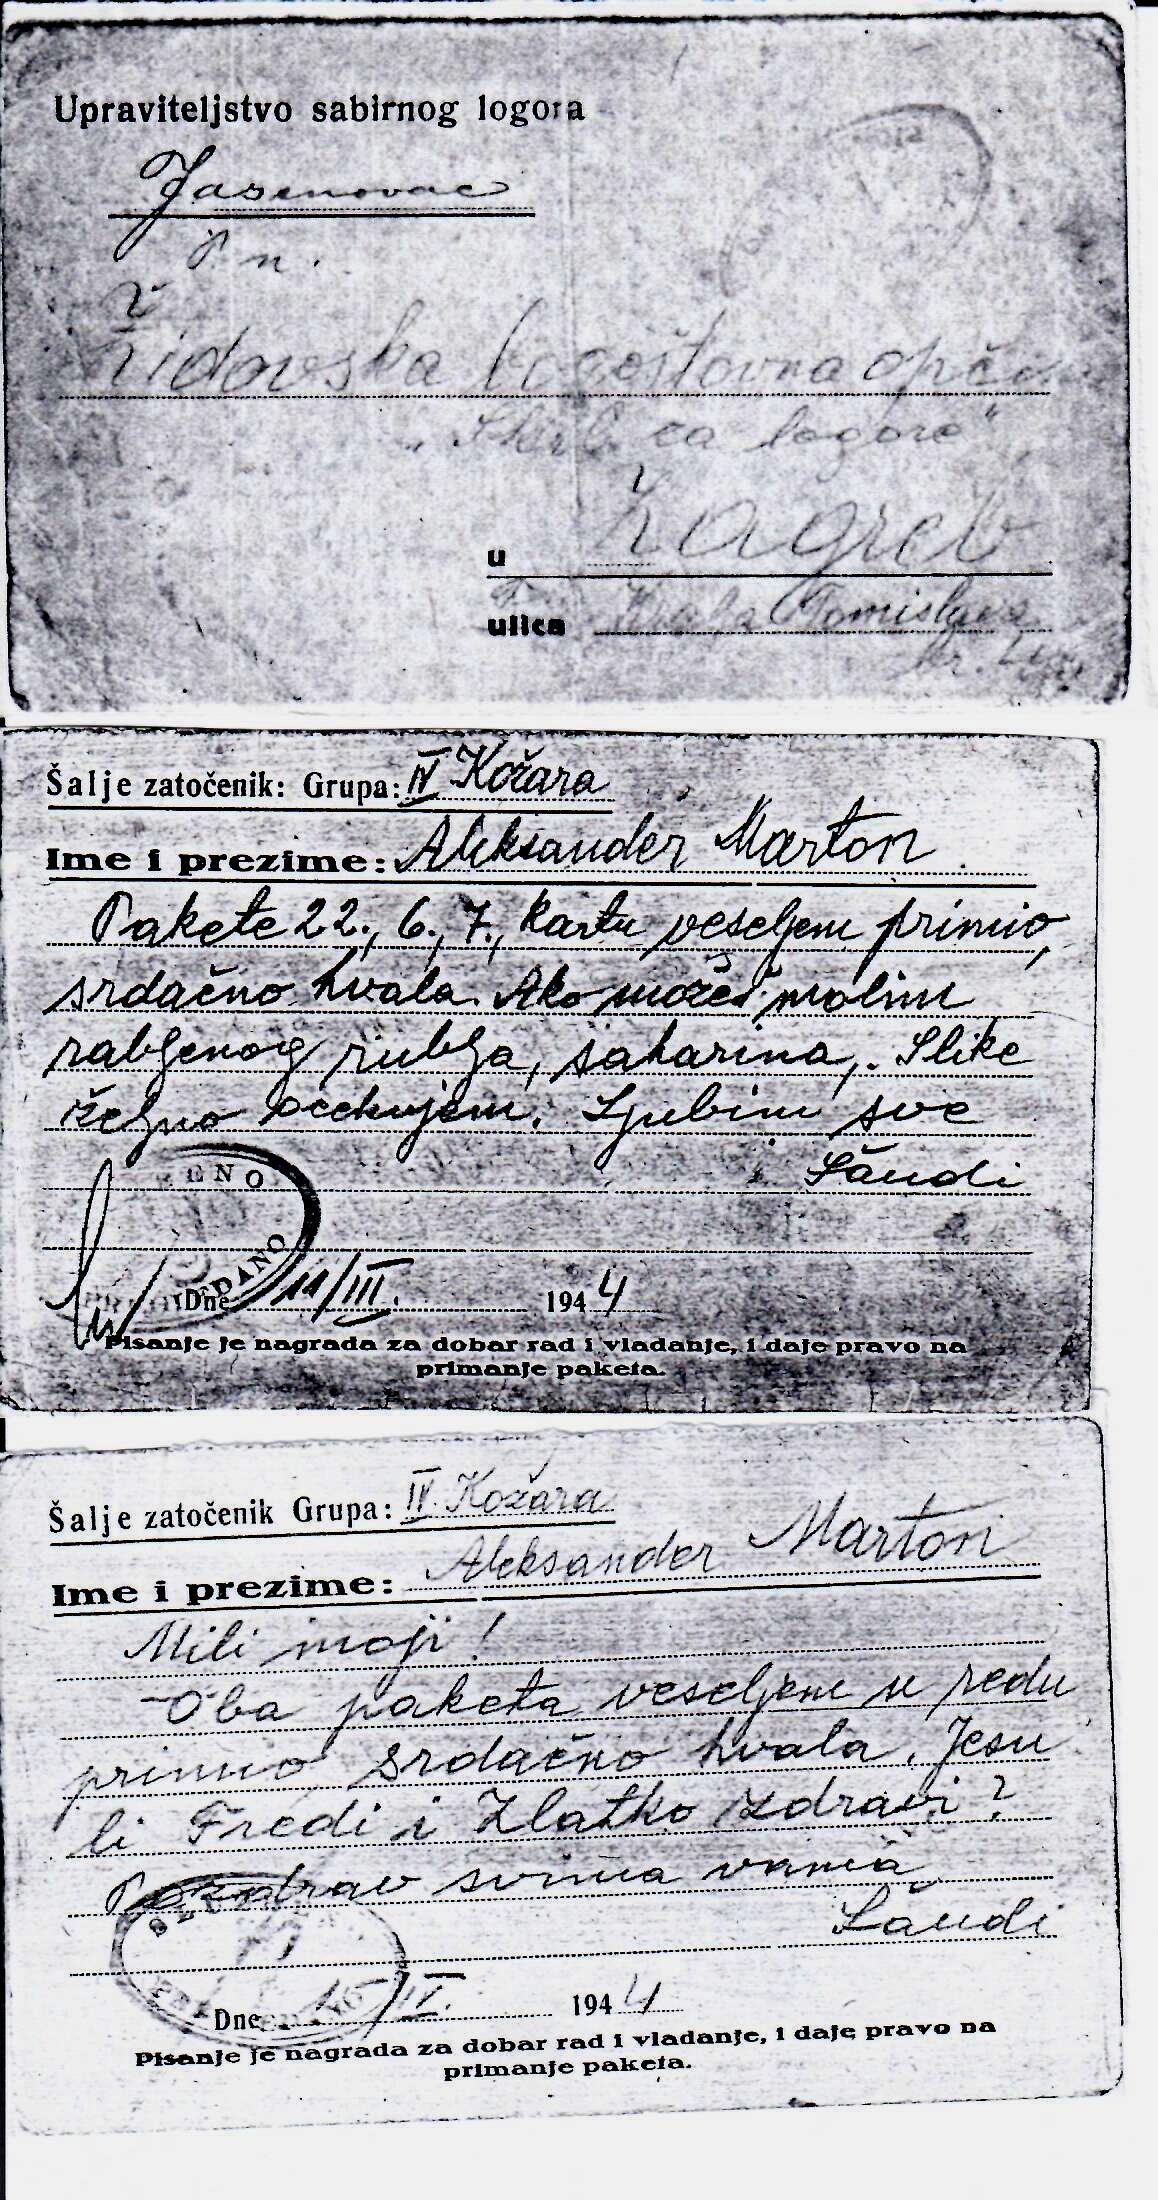 Upraviteljstvo sabirnog logora
Jasenovac
P. n.
Židovska bogoštovna opć.
"Skrb za logore"
u Zagreb
ulica Kralja Tomislava
br.
Šalje zatočenik: Grupa: IV Kožara
Ime i prezime: Aleksander Marton
Pakete 22., 6., 7., kartu veseljem primio,
srdačno hvala. Ako možeš molim
rabljenog rublja, saharina,. Slike
željno očekujem. Ljubim sve
Šandi
ENO
EDANO
Dne 11/III. 1944
Pisanje je nagrada za dobar rad i vladanje, i daje pravo na
primanje paketa.
Šalje zatočenik Grupa: IV. Kožara
Ime i prezime: Aleksander Marton
Mili moji!
Oba paketa veseljem u redu
primio srdačno hvala. Jesu
li Fredi i Zlatko zdravi?
Pozdrav svima vama
Šandi
Dne 1944
Pisanje je nagrada za dobar rad i vladanje, i daje pravo na
primanje paketa.